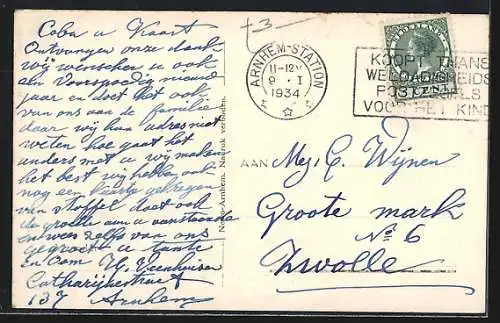 Coba u Kaart
Ontvangen onze dank
wij wenschen u ook
een Voorspoedig nieuw
jaar en doet het ook
van ons aan de familie
daar wij hun adres niet
weten hoe gaat het
anders met u wij maken
het best wij hebben ook
nog een kaartje gekregen
van Stoffel doet ook
de groete aan u
en wees zelfs van ons
gegroet u tante
en Oom H. Veenhuizen
Catharijnestraat
137 Arnhem
+3
ARNHEM-STATION
11-12V
9 I
1934
NEDERLAND
CENT
KOOPT THANS
WELDADIGHEIDS
POSTZEGELS
VOOR HET KIND
Arnhem. Nadruk verboden.
AAN Mej. C. Wijnen
Groote mark
No 6
Zwolle